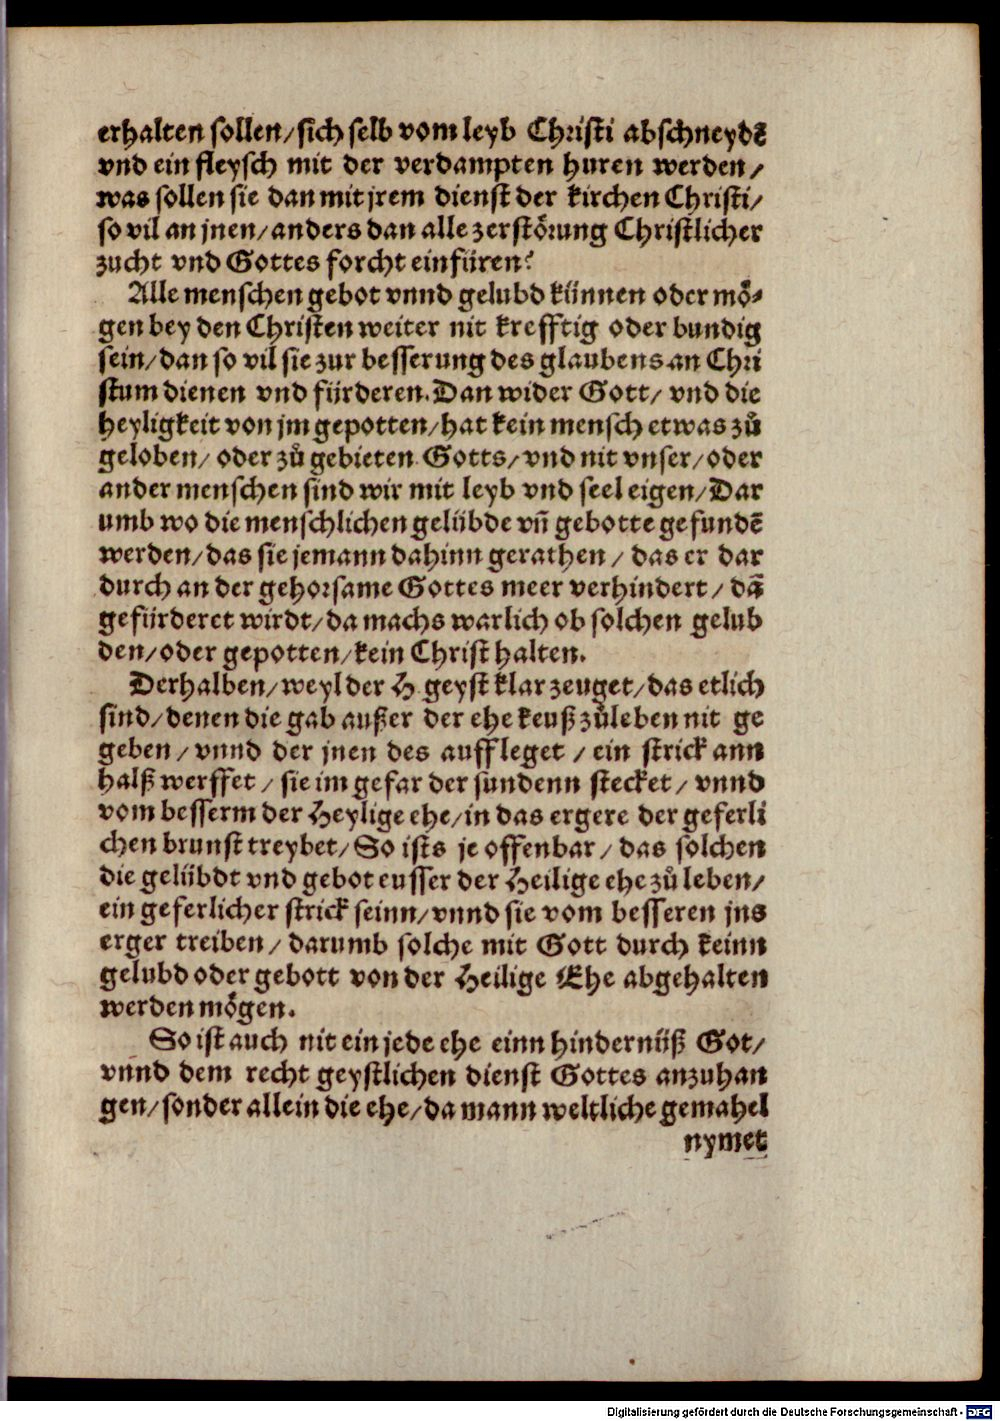 erhalten sollen/sich selb vom leyb Christi abschneydẽ
vnd ein fleysch mit der verdampten huren werden/
was sollen sie dan mit jrem dienst der kirchen Christi/
so vil an jnen/anders dan alle zerstörung Christlicher
zucht vnd Gottes forcht einfüren?
Alle menschen gebot vnnd gelubd künnen oder mö-
gen bey den Christen weiter nit krefftig oder bundig
sein/dan so vil sie zur besserung des glaubens an Chri
stum dienen vnd fürderen. Dan wider Gott/ vnd die
heyligkeit von jm gepotten/hat kein mensch etwas zů
geloben/ oder zů gebieten. Gotts/vnd nit vnser/oder
ander menschen sind wir mit leyb vnd seel eigen/Dar
umb wo die menschlichen gelübde vñ gebotte gefundẽ
werden/das sie jemann dahinn gerathen/ das er dar
durch an der gehorsame Gottes meer verhindert/ dã
gefürderet wirdt/da machs warlich ob solchen gelub
den/oder gepotten/kein Christ halten.
Derhalben/weyl der H. geyst klar zeuget/das etlich
sind/denen die gab außer der ehe keuß zů leben nit ge
geben/ vnnd der jnen des auffleget/ ein strick ann
halß werffet/ sie im gefar der sundenn stecket/ vnnd
vom besserm der Heylige ehe/in das ergere der geferli
chen brunst treybet/ So ists je offenbar/ das solchen
die gelübdt vnd gebot eusser der Heilige ehe zů leben/
ein geferlicher strick seinn/vnnd sie vom besseren jns
erger treiben/ darumb solche mit Gott durch keinn
gelubd oder gebott von der Heilige Ehe abgehalten
werden mögen.
So ist auch nit ein jede ehe einn hindernüß Got/
vnnd dem recht geystlichen dienst Gottes anzuhan
gen/sonder allein die ehe/da mann weltliche gemahel
nymet
Digitalisierung gefördert durch die Deutsche Forschungsgemeinschaft - DFG